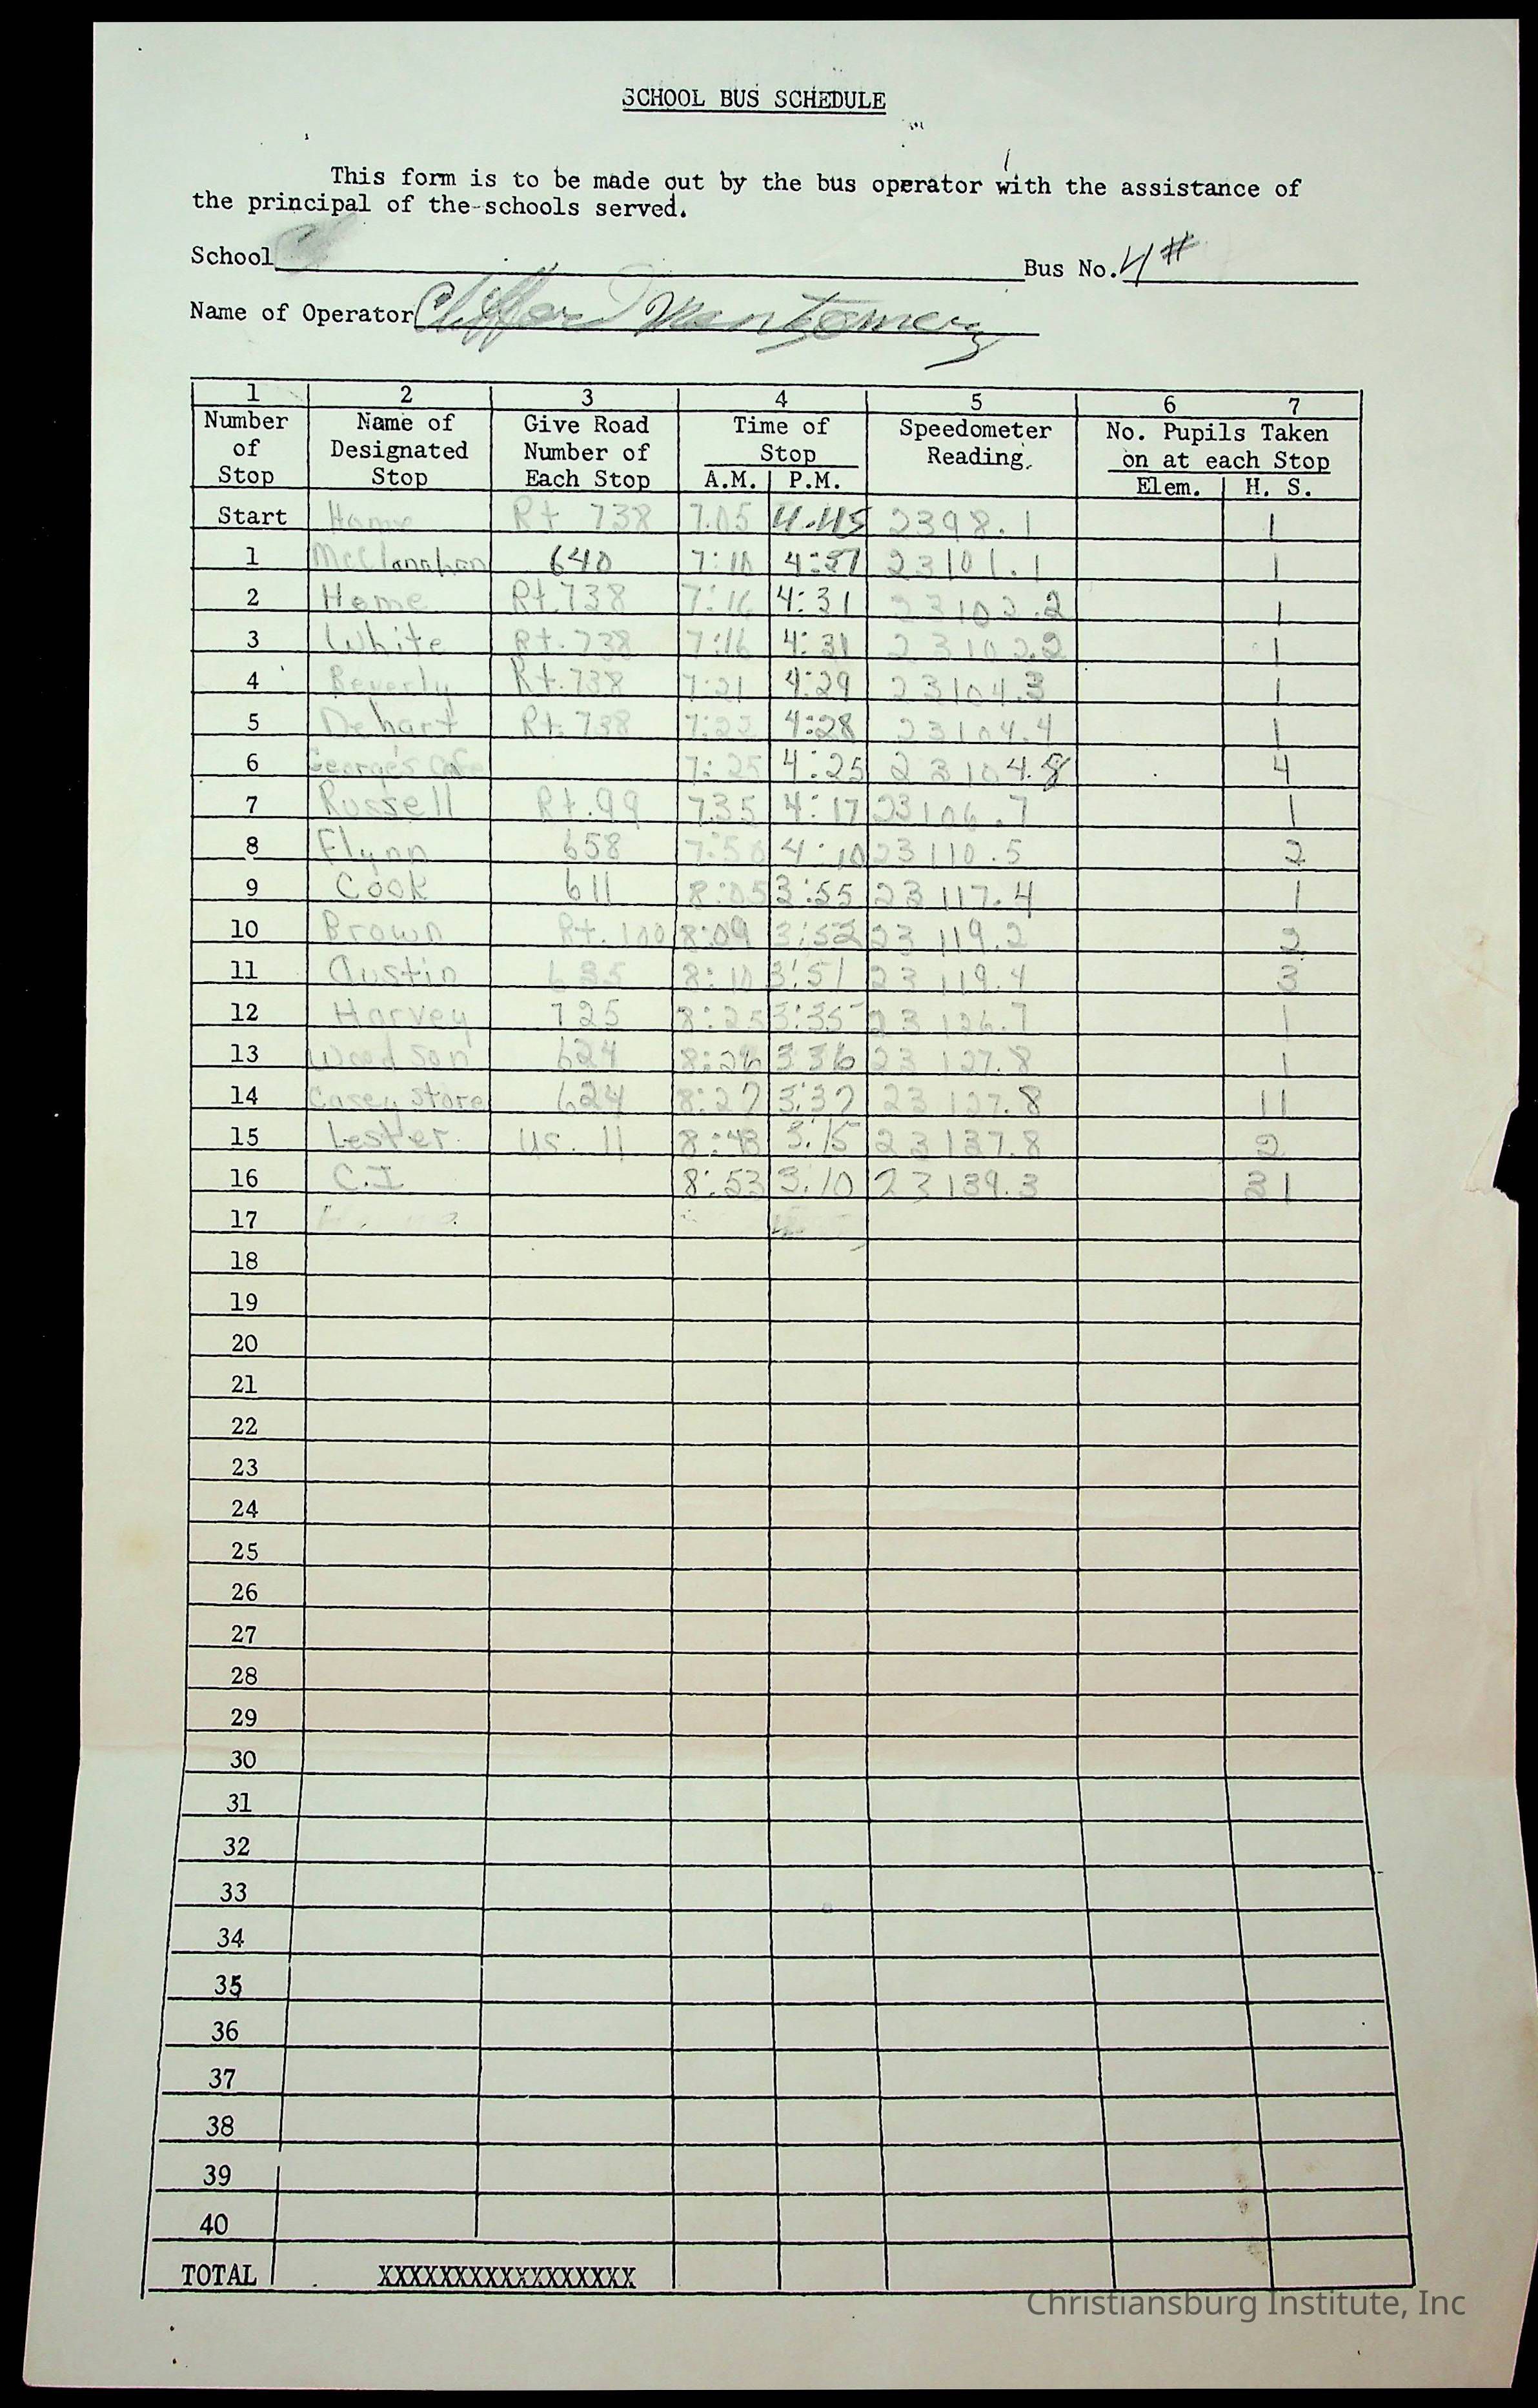 SCHOOL BUS SCHEDULE
This form is to be made out by the bus operator with the assistance of
the principal of the schools served.
School Bus No. 4 #
Name of Operator Clifford Montgomery
1 2 3 4 5 6 7
Number of Stop Name of Designated Stop Give Road Number of Each Stop Time of Stop A.M. P.M. Speedometer Reading. No. Pupils Taken on at each Stop Elem. H. S.
Start Home Rt 738 7.05 4.45 2398.1 1
1 McClanahan 640 7:10 4:37 23101.1 1
2 Home Rt.738 7:16 4:31 23102.2 1
3 White Rt.738 7:16 4:31 23102.2 1
4 Beverly Rt.738 7:21 4:29 23104.3 1
5 Dehart Rt.738 7:22 4:28 23104.4 1
6 George's Cafe 7:25 4:25 23104.8 4
7 Russell Rt.99 7.35 4:17 23106.7 1
8 Flynn 658 7:50 4:10 23110.5 2
9 Cook 611 8:05 3:55 23117.4 1
10 Brown Rt.100 8:09 3:52 23119.2 2
11 Austin 635 8:10 3:51 23119.4 3
12 Harvey 725 8:25 3:35 23126.7 1
13 Wood Son 624 8:26 3 36 23127.8 1
14 Casey Store 624 8:27 3:37 23127.8 11
15 Lester us. 11 8:48 3:15 23137.8 2
16 C.I 8:53 3:10 23139.3 31
17
18
19
20
21
22
23
24
25
26
27
28
29
30
31
32
33
34
35
36
37
38
39
40
TOTAL XXXXXXXXXXXXXXXXX
Christiansburg Institute, Inc